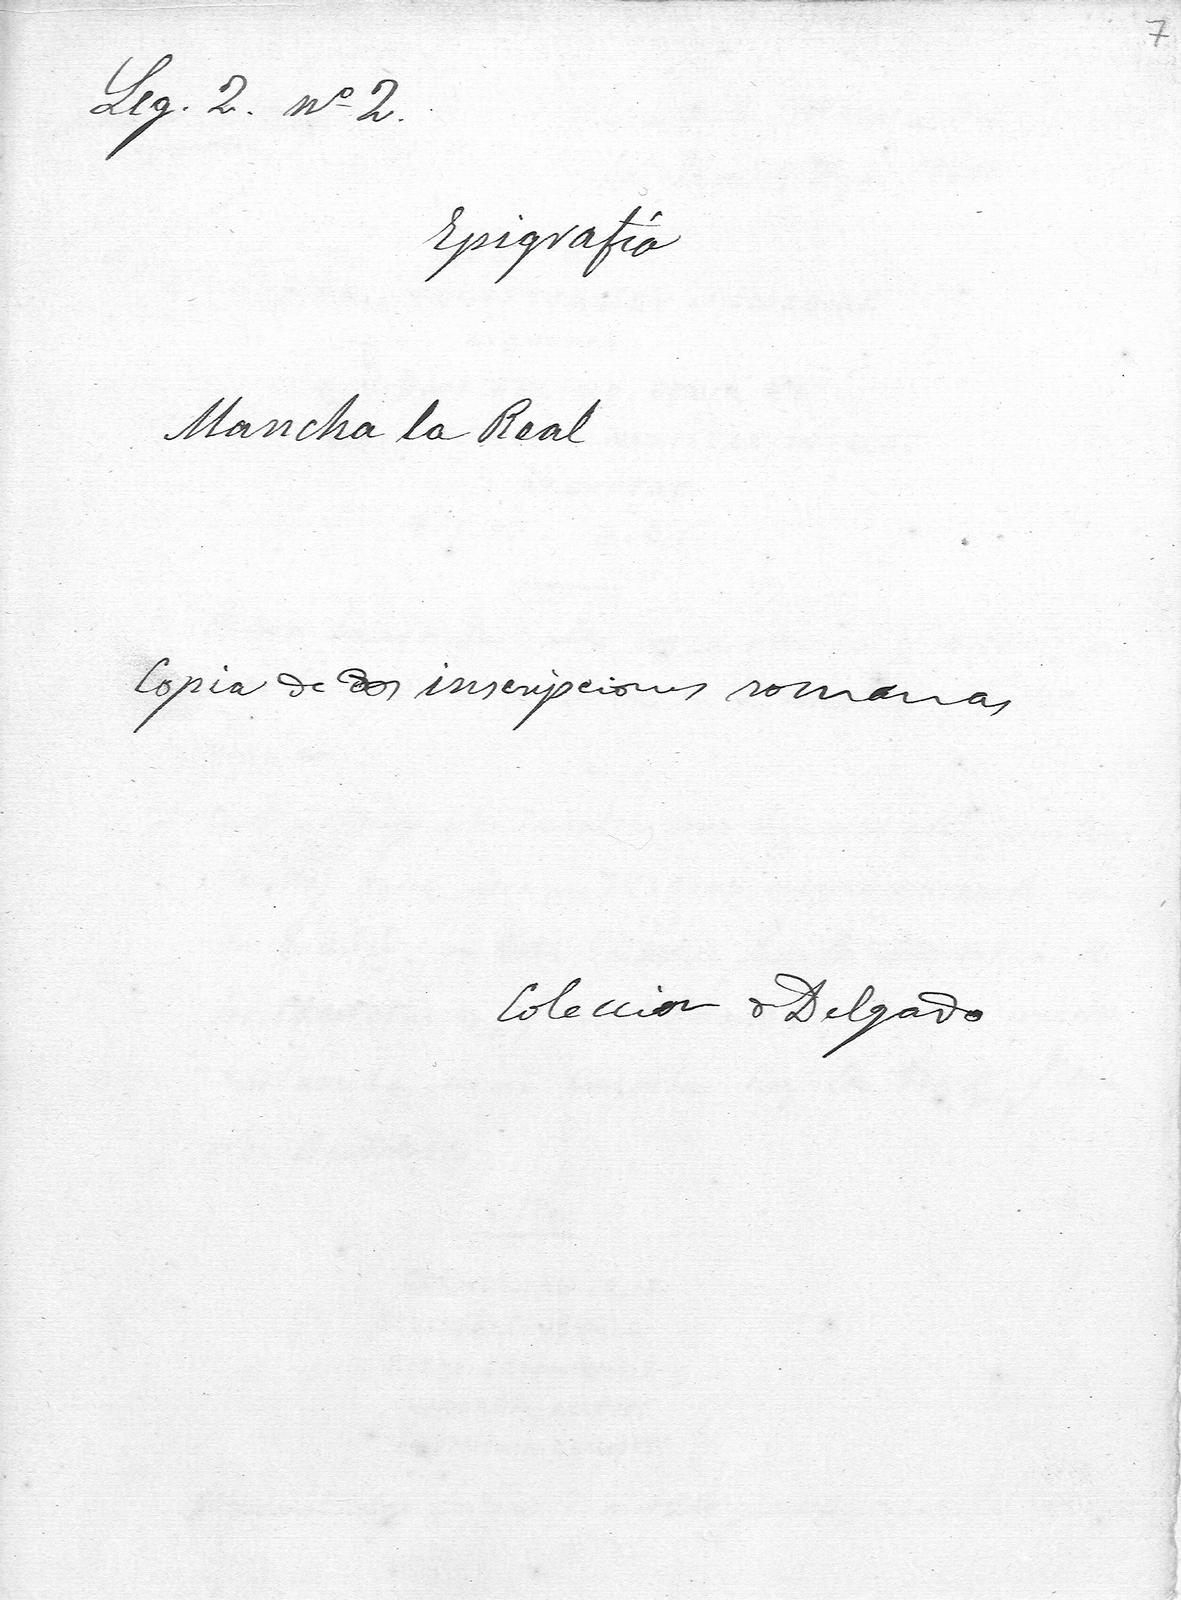 7
Leg. 2. nº 2.
Epigrafía
Mancha la Real
Copia de dos inscripciones romanas
Coleccion d Delgado